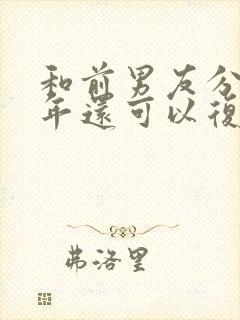 和前男友分
年還可以復
弗洛里